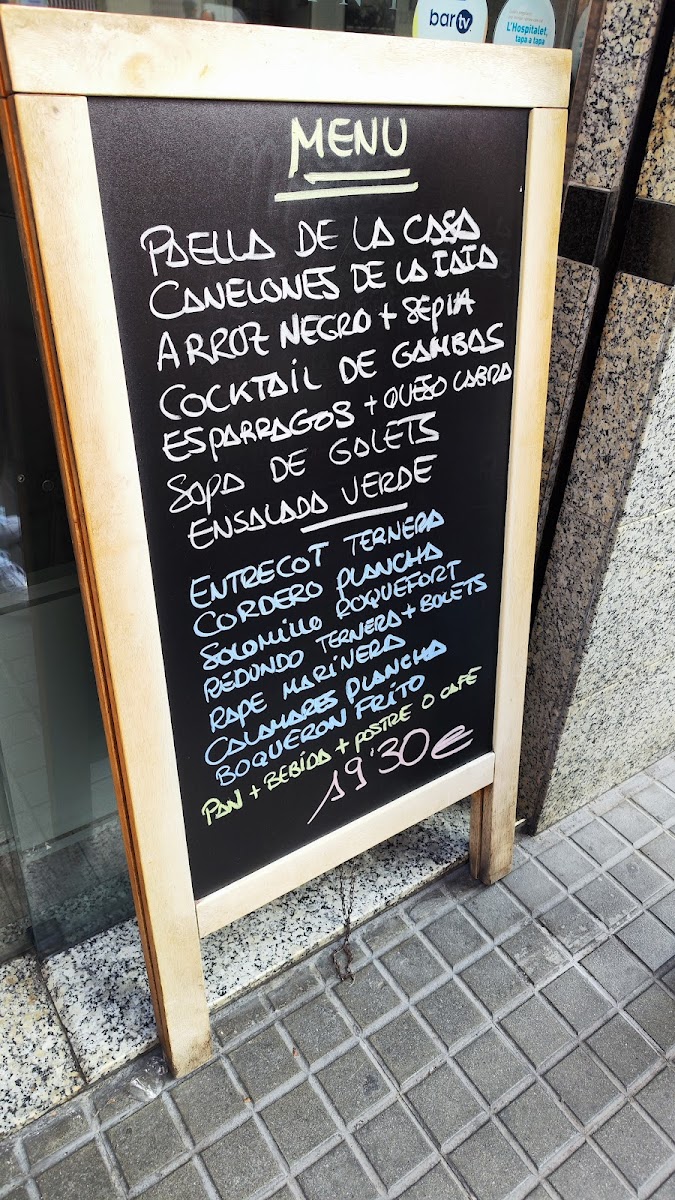 bar tv
L'Hospitalet,
tapa a tapa
MENU
PAELLA DE LA CASA
CANELONES DE LA IAIA
ARROZ NEGRO + SEPIA
COCKTAIL DE GAMBAS
ESPARRAGOS + QUESO CABRA
SOPA DE GALETS
ENSALADA VERDE
ENTRECOT TERNERA
CORDERO PLANCHA
SOLOMILLO ROQUEFORT
REDONDO TERNERA + BOLETS
RAPE MARINERA
CALAMARES PLANCHA
BOQUERON FRITO
PAN + BEBIDA + POSTRE O CAFÉ
19'30€